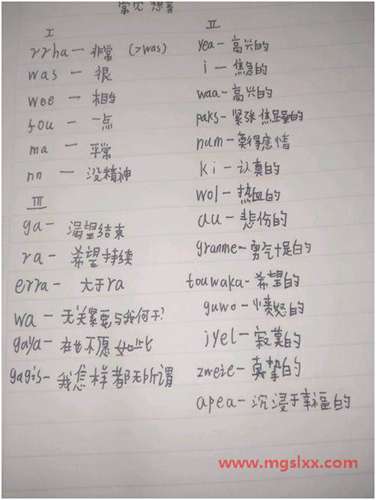 常见
I
rrha — 非常 (>was)
was — 很
wee — 相当
fou — 一点
ma — 平常
nn — 没精神
III
ga — 渴望结束
ra — 希望持续
erra — 大于ra
wa — 无关紧要与我何干?
gaya — 在也不愿如此
gagis — 我怎样都无所谓
II
yea — 高兴的
i — 焦急的
waa — 高兴的
paks — 紧张焦虑的
num — 莫得感情
ki — 认真的
wol — 热血的
au — 悲伤的
granme — 勇气十足的
touwaka — 希望的
guwo — 愤怒的
jyel — 寂寞的
zweie — 真挚的
apea — 沉浸于幸福的
www.mgslxx.com